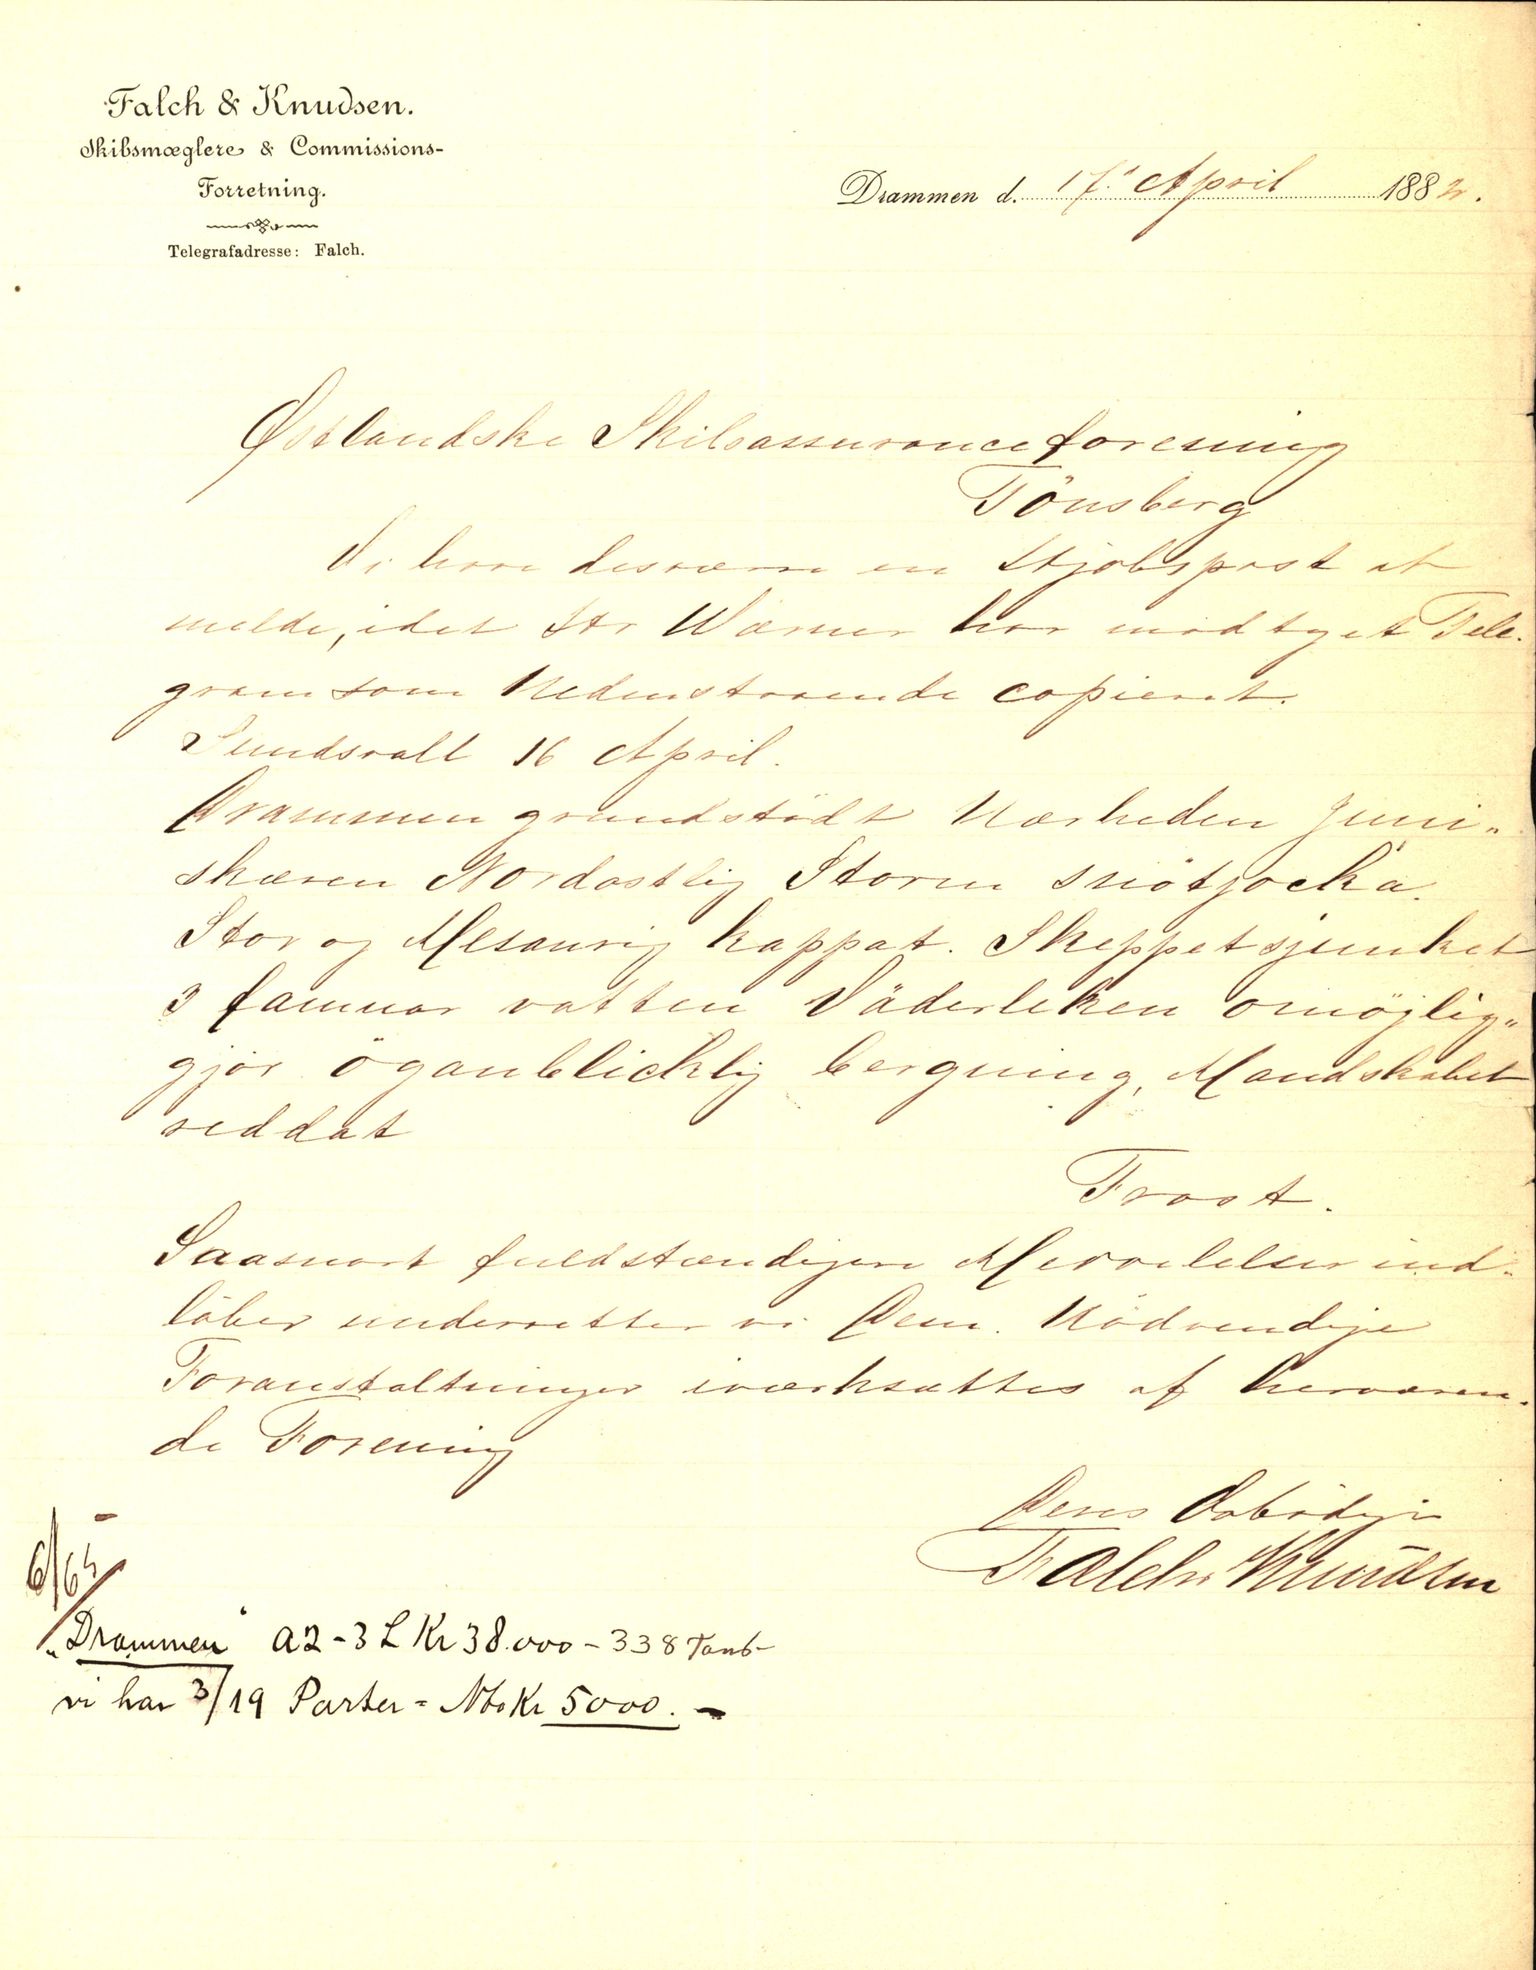 Falch & Knudsen.
Skibsmæglere & Commissions-
Forretning.
Telegrafadresse: Falch.
Drammen d. 17' April 1882.
Østlandske Skibsassuranceforening
Tönsberg
Vi have desværre en Stjobspost at
melde, idet Hr Wærner har modtaget Tele-
gram som Nedenstaaende copieret.
Sundsvall 16 April.
Drammen grundstödt Nærheden Juni-
skæren Nordostlig Storm snötjocka.
Stor og Mesanrig kappat. Skeppet sjunket
3 famnar vatten Väderleken omöjlig-
gjör öganblicklig bergning, Mandskabet
reddat
Frost.
Saasnart fuldstændigere Meddelelser ind-
löber underretter vi Dem. Nödvendige
Foranstaltninger iværksættes af herværen-
de Forening
Deres Ærbödige
Falch & Knudsen
6/65
"Drammen" A2-3 L Kr 38.000 - 338 Tons
vi har 3/19 Parter = Kr 5000.-